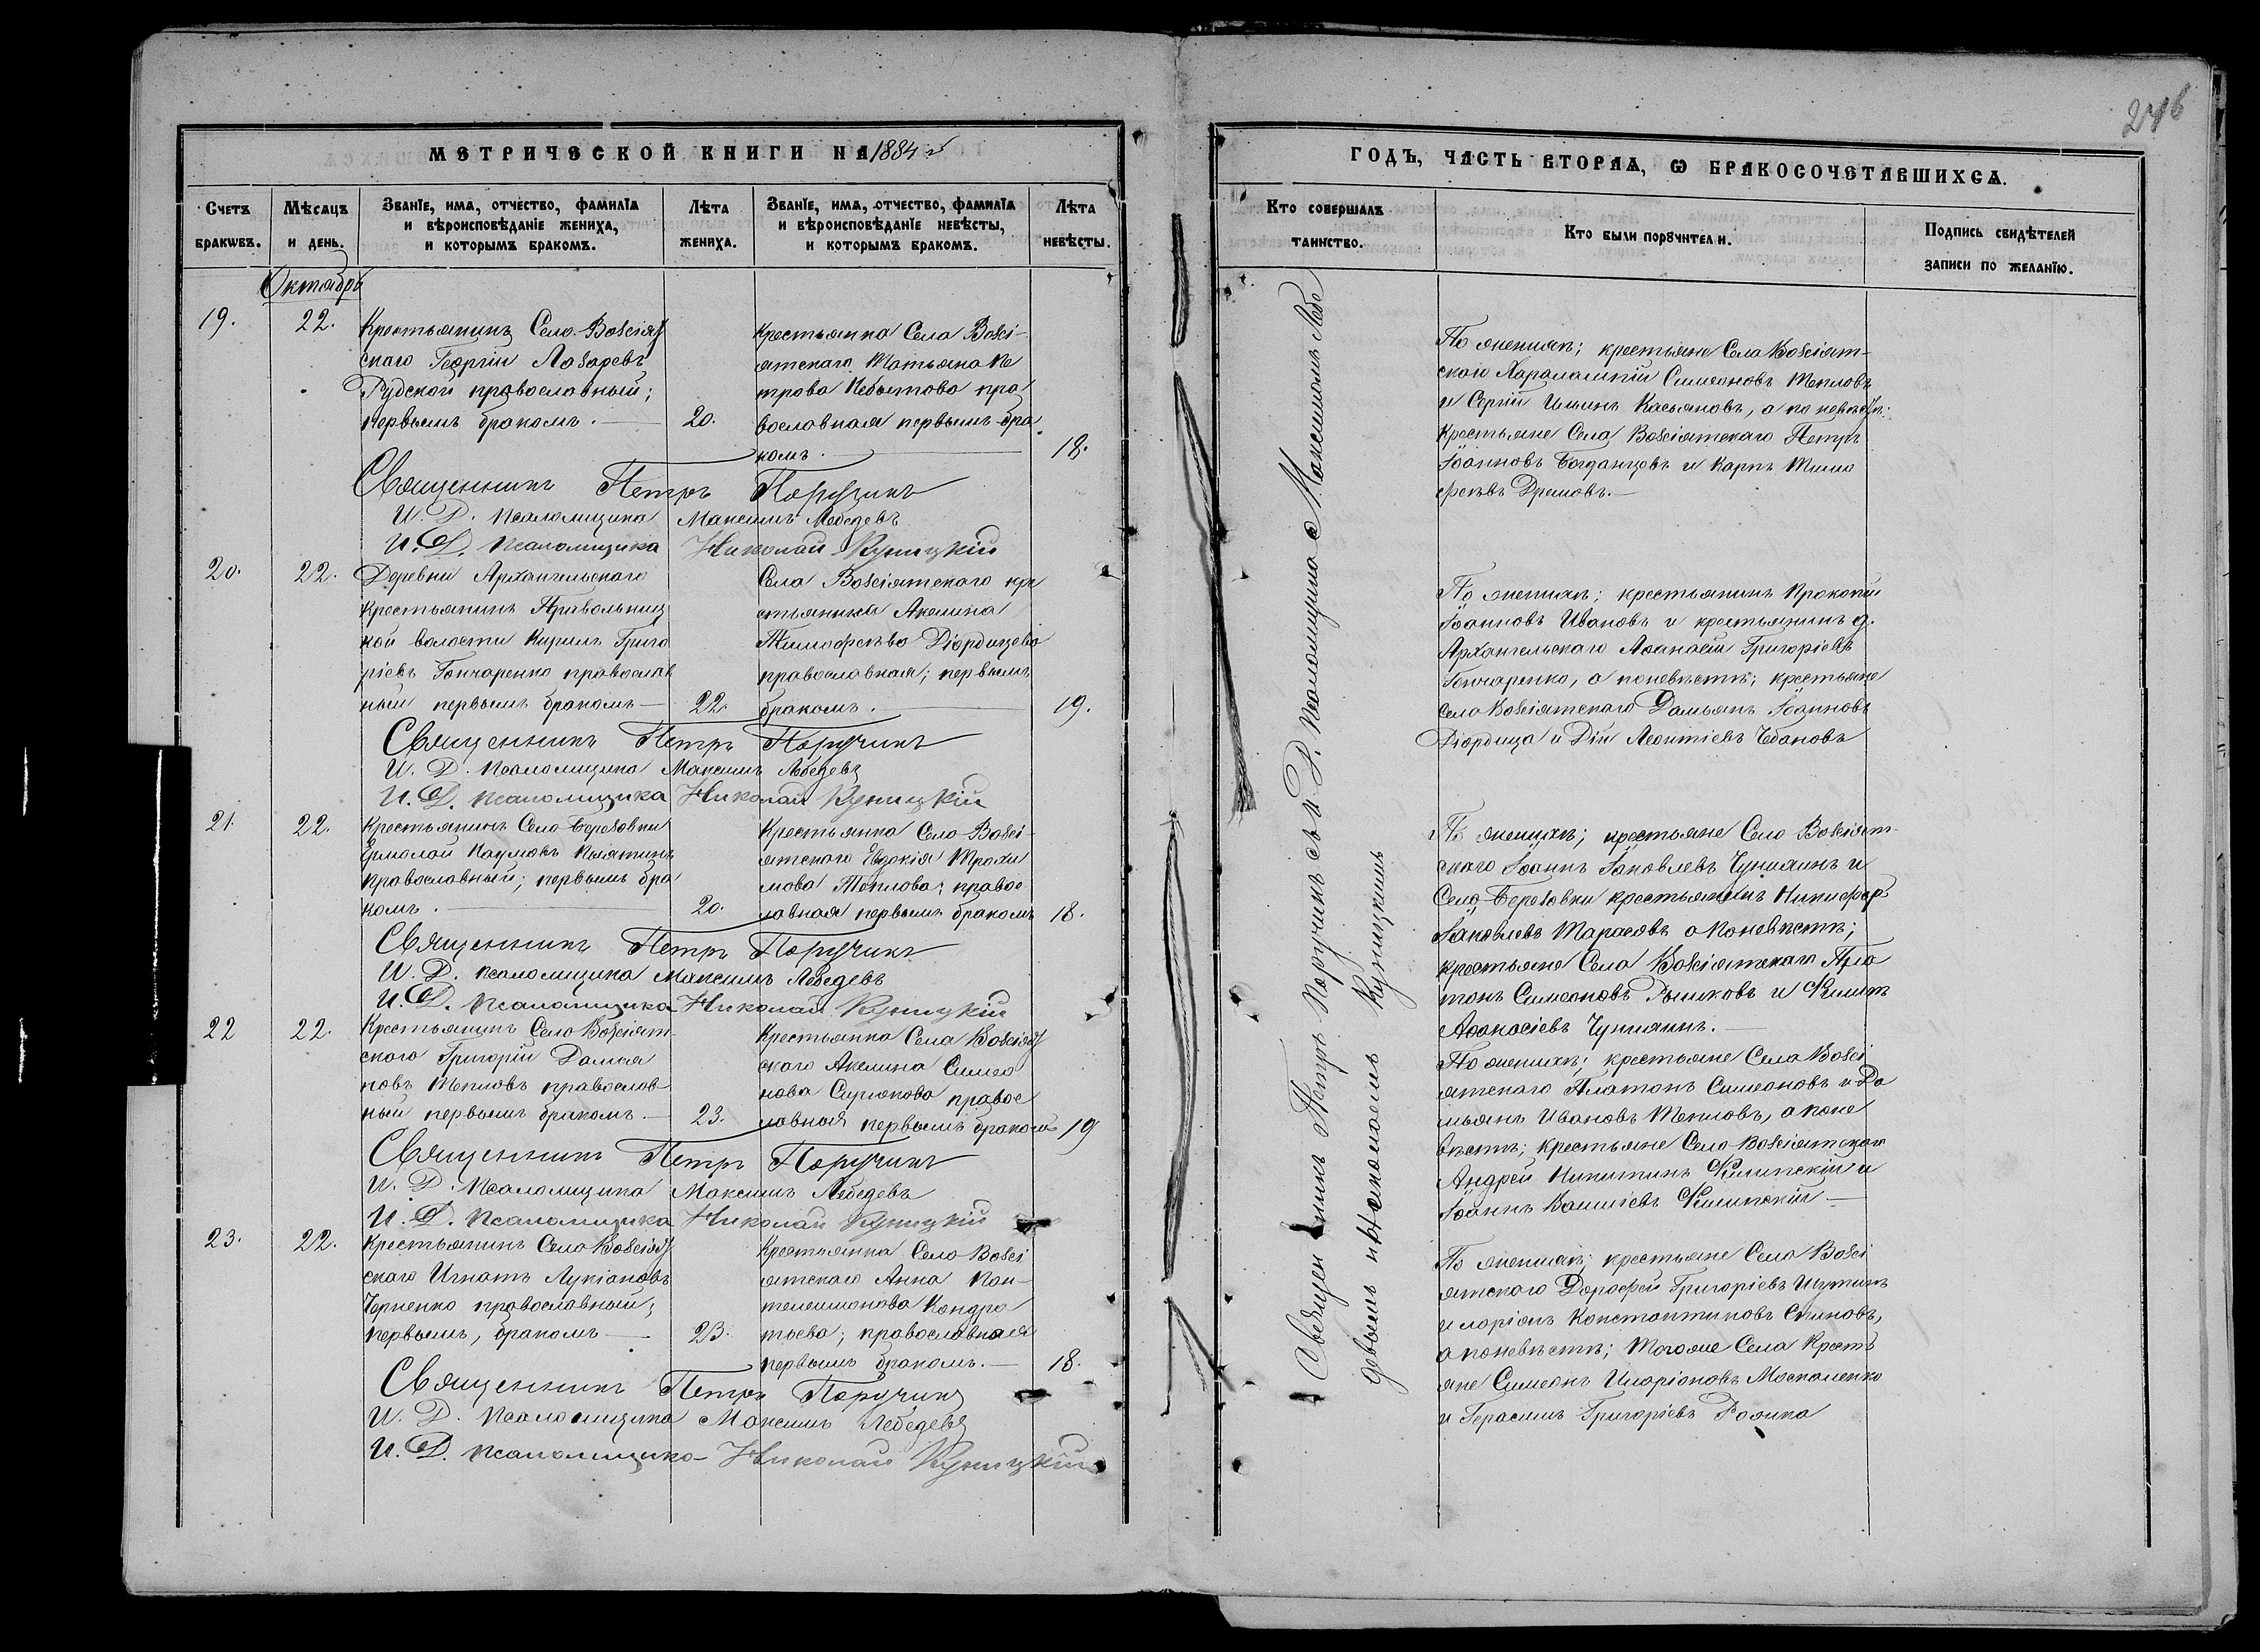 МЕТРИЧЕСКОЙ КНИГИ НА 1884 г.
Счетъ браковъ.
Мѣсяцъ и день.
Званіе, имя, отчество, фамилія
и вѣроисповѣданіе жениха,
и которымъ бракомъ.
Лѣта
жениха.
Званіе, имя, отчество, фамилія
и вѣроисповѣданіе невѣсты,
и которымъ бракомъ.
Лѣта
невѣсты.
Октябрь
19.
22.
Крестьянинъ Села Возсіят
скаго Георгій Лазаревъ
Рудской православный;
первымъ бракомъ.
20.
крестьянка Села Возсі-
ятскаго Татьяна Пе
трова пра
вославная первымъ бра
комъ.
18.
Священникъ Петръ Поручикъ
И. Д. псаломщика Максимъ Лебедевъ
И. Д. псаломщика Николай Куницкій
20.
22.
Деревни Архангельскаго
крестьянинъ Привольниц
кой волости Кирилъ Григо
ріевъ Гончаренко православ
ный первымъ бракомъ
22.
Села Возсіятскаго кре
стьянка Акелина
Тимофеева Діордицева
православная; первымъ
бракомъ.
19.
Священникъ Петръ Поручикъ
И. Д. псаломщика Максимъ Лебедевъ
И. Д. псаломщика Николай Куницкій
21.
22.
Крестьянинъ Села Березовки
Ермолай Наумовъ
православный; первымъ бра
комъ.
20.
Крестьянка Села Возсі-
ятскаго Евдокія Трохи
мова Теплова; правос
лавная первымъ бракомъ
18.
Священникъ Петръ Поручикъ
И. Д. псаломщика Максимъ Лебедевъ
И. Д. псаломщика Николай Куницкій
22
22.
Крестьянинъ Села Возсіят-
скаго Григорій Дамья
новъ Тепловъ православ-
ный первымъ бракомъ.
23.
Крестьянка Села Возсіят
скаго Акелина Симео
нова Сирюкова правос
лавная первымъ бракомъ
19
Священникъ Петръ Поручикъ
И. Д. псаломщика Максимъ Лебедевъ
И. Д. псаломщика Николай Куницкій
23.
22.
Крестьянинъ Села Возсіят
скаго Игнатъ Лукіановъ
Черненко православный;
первымъ, бракомъ
23.
Крестьянка Села Возсі
ятскаго Анна Пан-
телеимонова Кондра
тьева; православная
первымъ бракомъ.
18.
Священникъ Петръ Поручикъ
И. Д. псаломщика Максимъ Лебедевъ
И. Д. псаломщика Николай Куницкій
246
ГОДЪ, ЧАСТЬ ВТОРАЯ, Ѡ БРАКОСОЧЕТАВШИХСЯ.
Кто совершалъ
таинство.
Кто были поручители.
Подпись свидѣтелей
записи по желанію.
Священникъ Петръ Поручикъ съ И. Д. Псаломщика Максимомъ Лебе
девымъ и Николаемъ Куницкимъ
По женихѣ; крестьяне Села Возсіят-
скаго Харалампій Симеоновъ Тепловъ
и Сергій Ильинъ Касьяновъ, а по невѣстѣ:
крестьяне Села Возсіятскаго Петръ
Іоанновъ Богданцевъ и Карпъ Тимо
феевъ Дремовъ.
По женихѣ; крестьянинъ Прокопій
Іоанновъ Ивановъ и крестьянинъ д.
Архангельскаго Афанасій Григоріевъ
Гончаренко, а поневѣстѣ; крестьяне
Села Возсіятскаго Дамьянъ Іоанновъ
Діордица и Дій Леонтіевъ Чебановъ
По женихѣ; крестьяне Села Возсіят-
скаго Іоаннъ Іаковлевъ Чунихинъ и
Села Березовки крестьянинъ Никифоръ
Іаковлевъ Тарасовъ а поневѣстѣ;
крестьяне Села Возсіятскаго Пла
тонъ Симеоновъ и Филипъ
Афанасіевъ Чунихинъ.
По женихѣ; крестьяне Села Возсі
ятскаго Платонъ Симеоновъ и Да
мьянъ Ивановъ Тепловъ, а поне
вѣстѣ; крестьяне Села Возсіятскаго
Андрей Никитинъ Филипскій и
Іоаннъ Василіевъ Филипскій
По женихѣ; крестьяне Села Возсі
ятскаго Дорофей Григоріевъ Шутикъ
Иларіонъ Константиновъ
а поневѣстѣ; Тогоже Села Кресть
яне Симеонъ Иларіоновъ Москаленко
и Герасимъ Григоріевъ